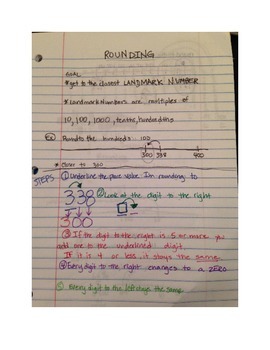 ROUNDING
GOAL
*get to the closest LANDMARK NUMBER
*Landmark Numbers are multiples of
10, 100, 1000, tenths, hundredths
Ex Round to the hundreds: 100
300 338 400
* closer to 300
STEPS ① Underline the place value I'm rounding to
338 ② Look at the digit to the right
300
③ If the digit to the right is 5 or more you
add one to the underlined digit.
If it is 4 or less, it stays the same.
④ Every digit to the right changes to a ZERO
⑤ Every digit to the left stays the same